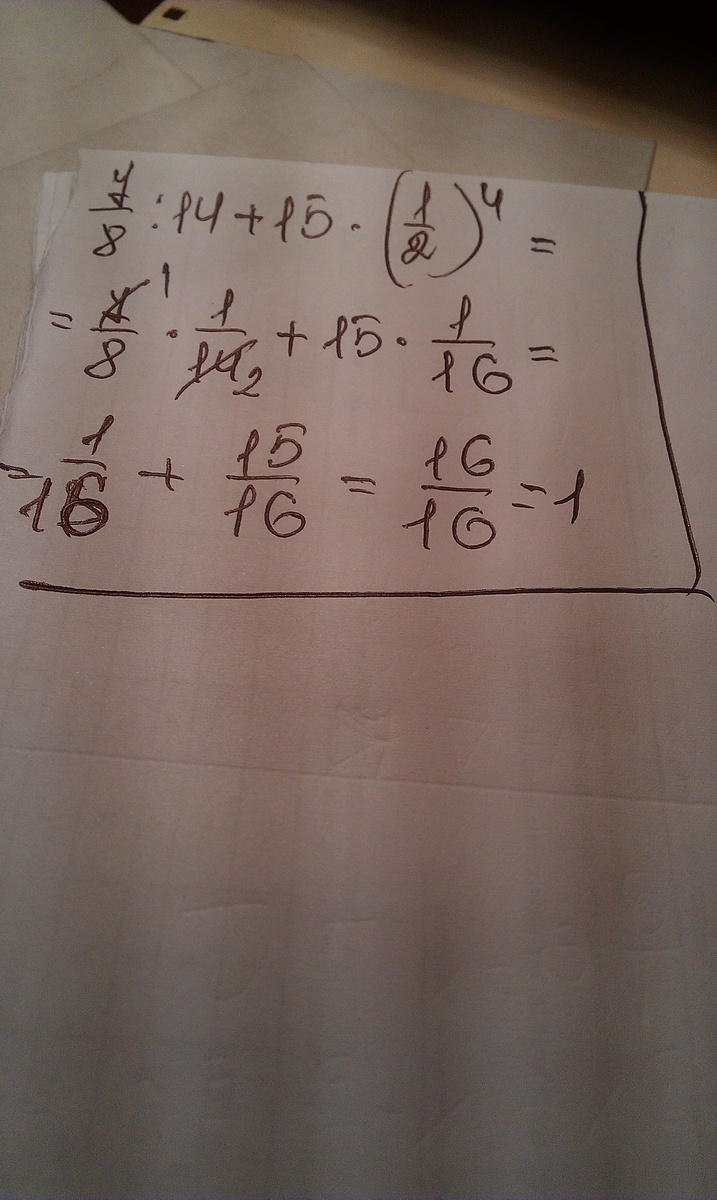 7/8 : 14 + 15 · (1/2)^4 =
= 7/8 ^1 · 1/14 _2 + 15 · 1/16 =
= 1/16 + 15/16 = 16/16 = 1